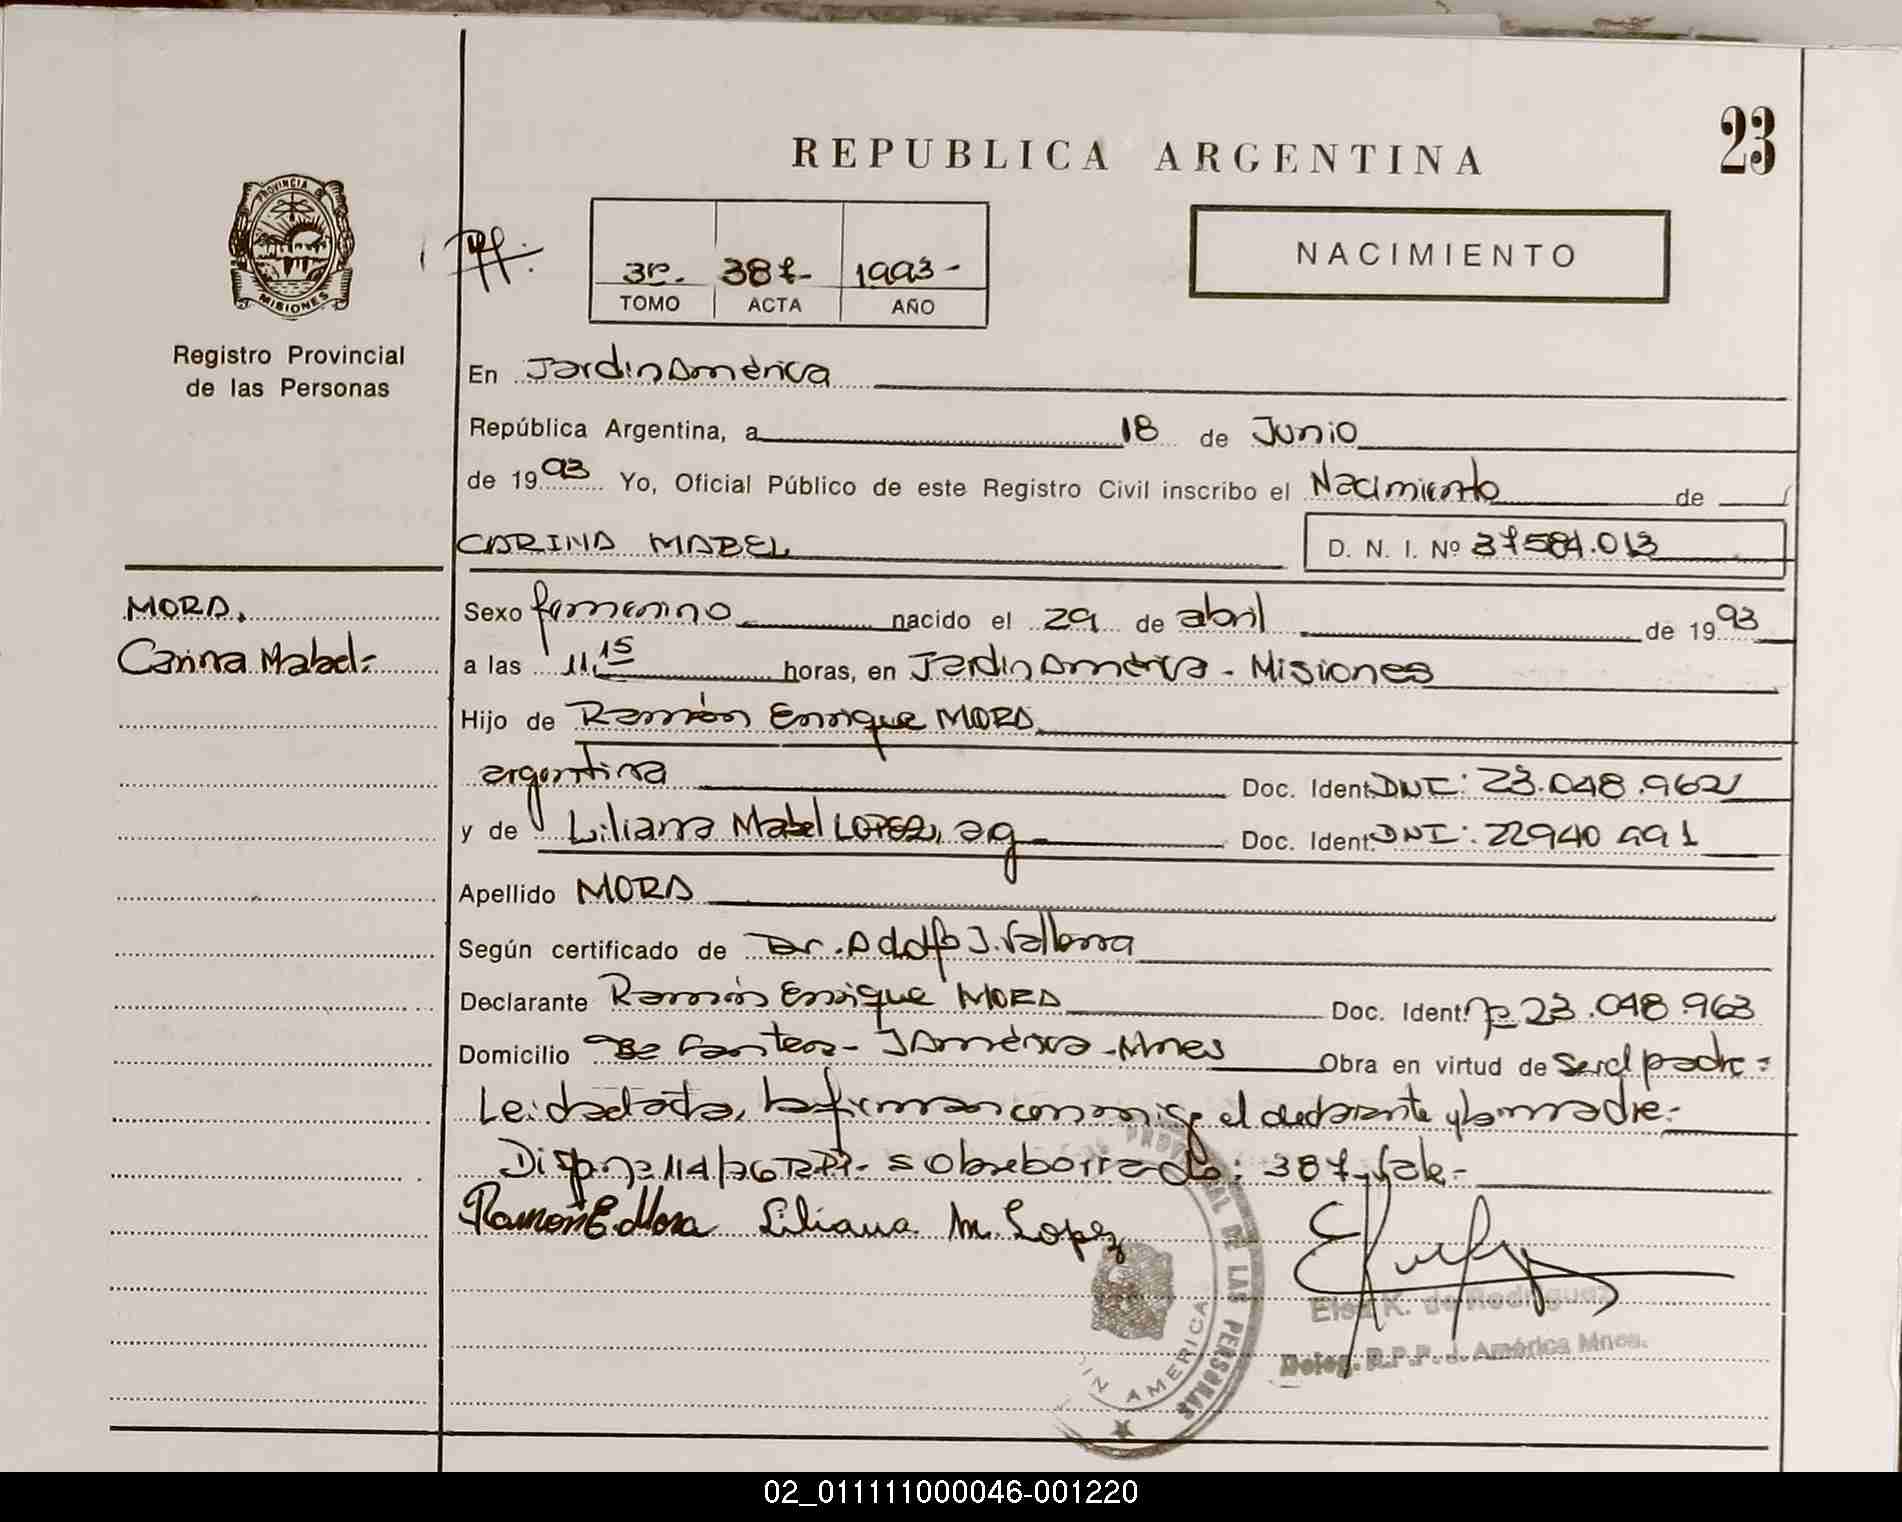 23
REPUBLICA ARGENTINA
PROVINCIA DE
MISIONES
Registro Provincial
de las Personas
3º. 387- 1993-
TOMO ACTA AÑO
NACIMIENTO
En Jardin América
República Argentina, a 18 de Junio
de 1993 Yo, Oficial Público de este Registro Civil inscribo el Nacimiento de
CARINA MABEL D. N. I. Nº 37584.013
MORA,
Carina Mabel-
Sexo femenino nacido el 29 de abril de 1993
a las 11,15 horas, en Jardin América - Misiones
Hijo de Ramón Enrique MORA
argentina Doc. Ident DNI: 23.048.962
y de Liliana Mabel LOPEZ, ag Doc. Ident DNI: 22940 991
Apellido MORA
Según certificado de Dr. Adolfo J.
Declarante Ramón Enrique MORA Doc. Ident. 23.048.963
Domicilio J América - Mnes Obra en virtud de Ser el padre =
Leida el acta, la firman conmigo el declarante y la madre.-
Disp. nº 114/76 RPP.- sobreborrado: 387-Vale-
Ramon E. Mora Liliana M. Lopez
PROVINCIAL DE LAS PERSONAS
AMERICA
Elsa K. de Rodriguez
Deleg. R.P.P. J. América Mnes.
02_011111000046-001220